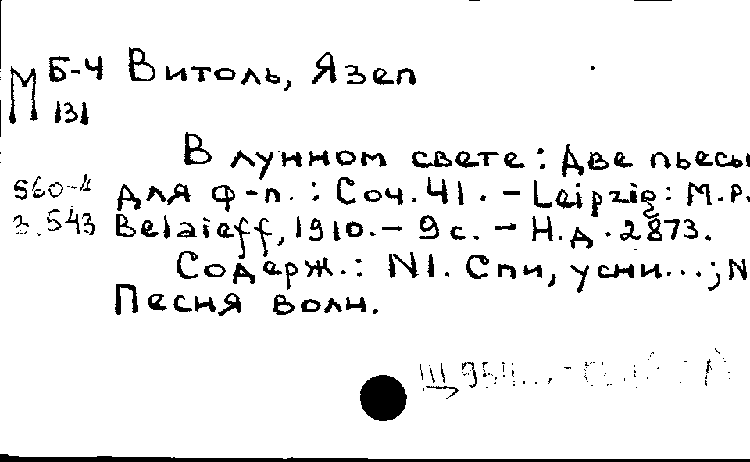 М Б-4 Витоль, Язеп
131
В лунном свете: Две пьесы
560-4 для ф-п.: Соч. 41. - Leipzig: M.P.
3.543 Belaieff, 1910. - 9 с. - Н.д. 2873.
Содерж.: N1. Спи, усни...; N
Песня волн.